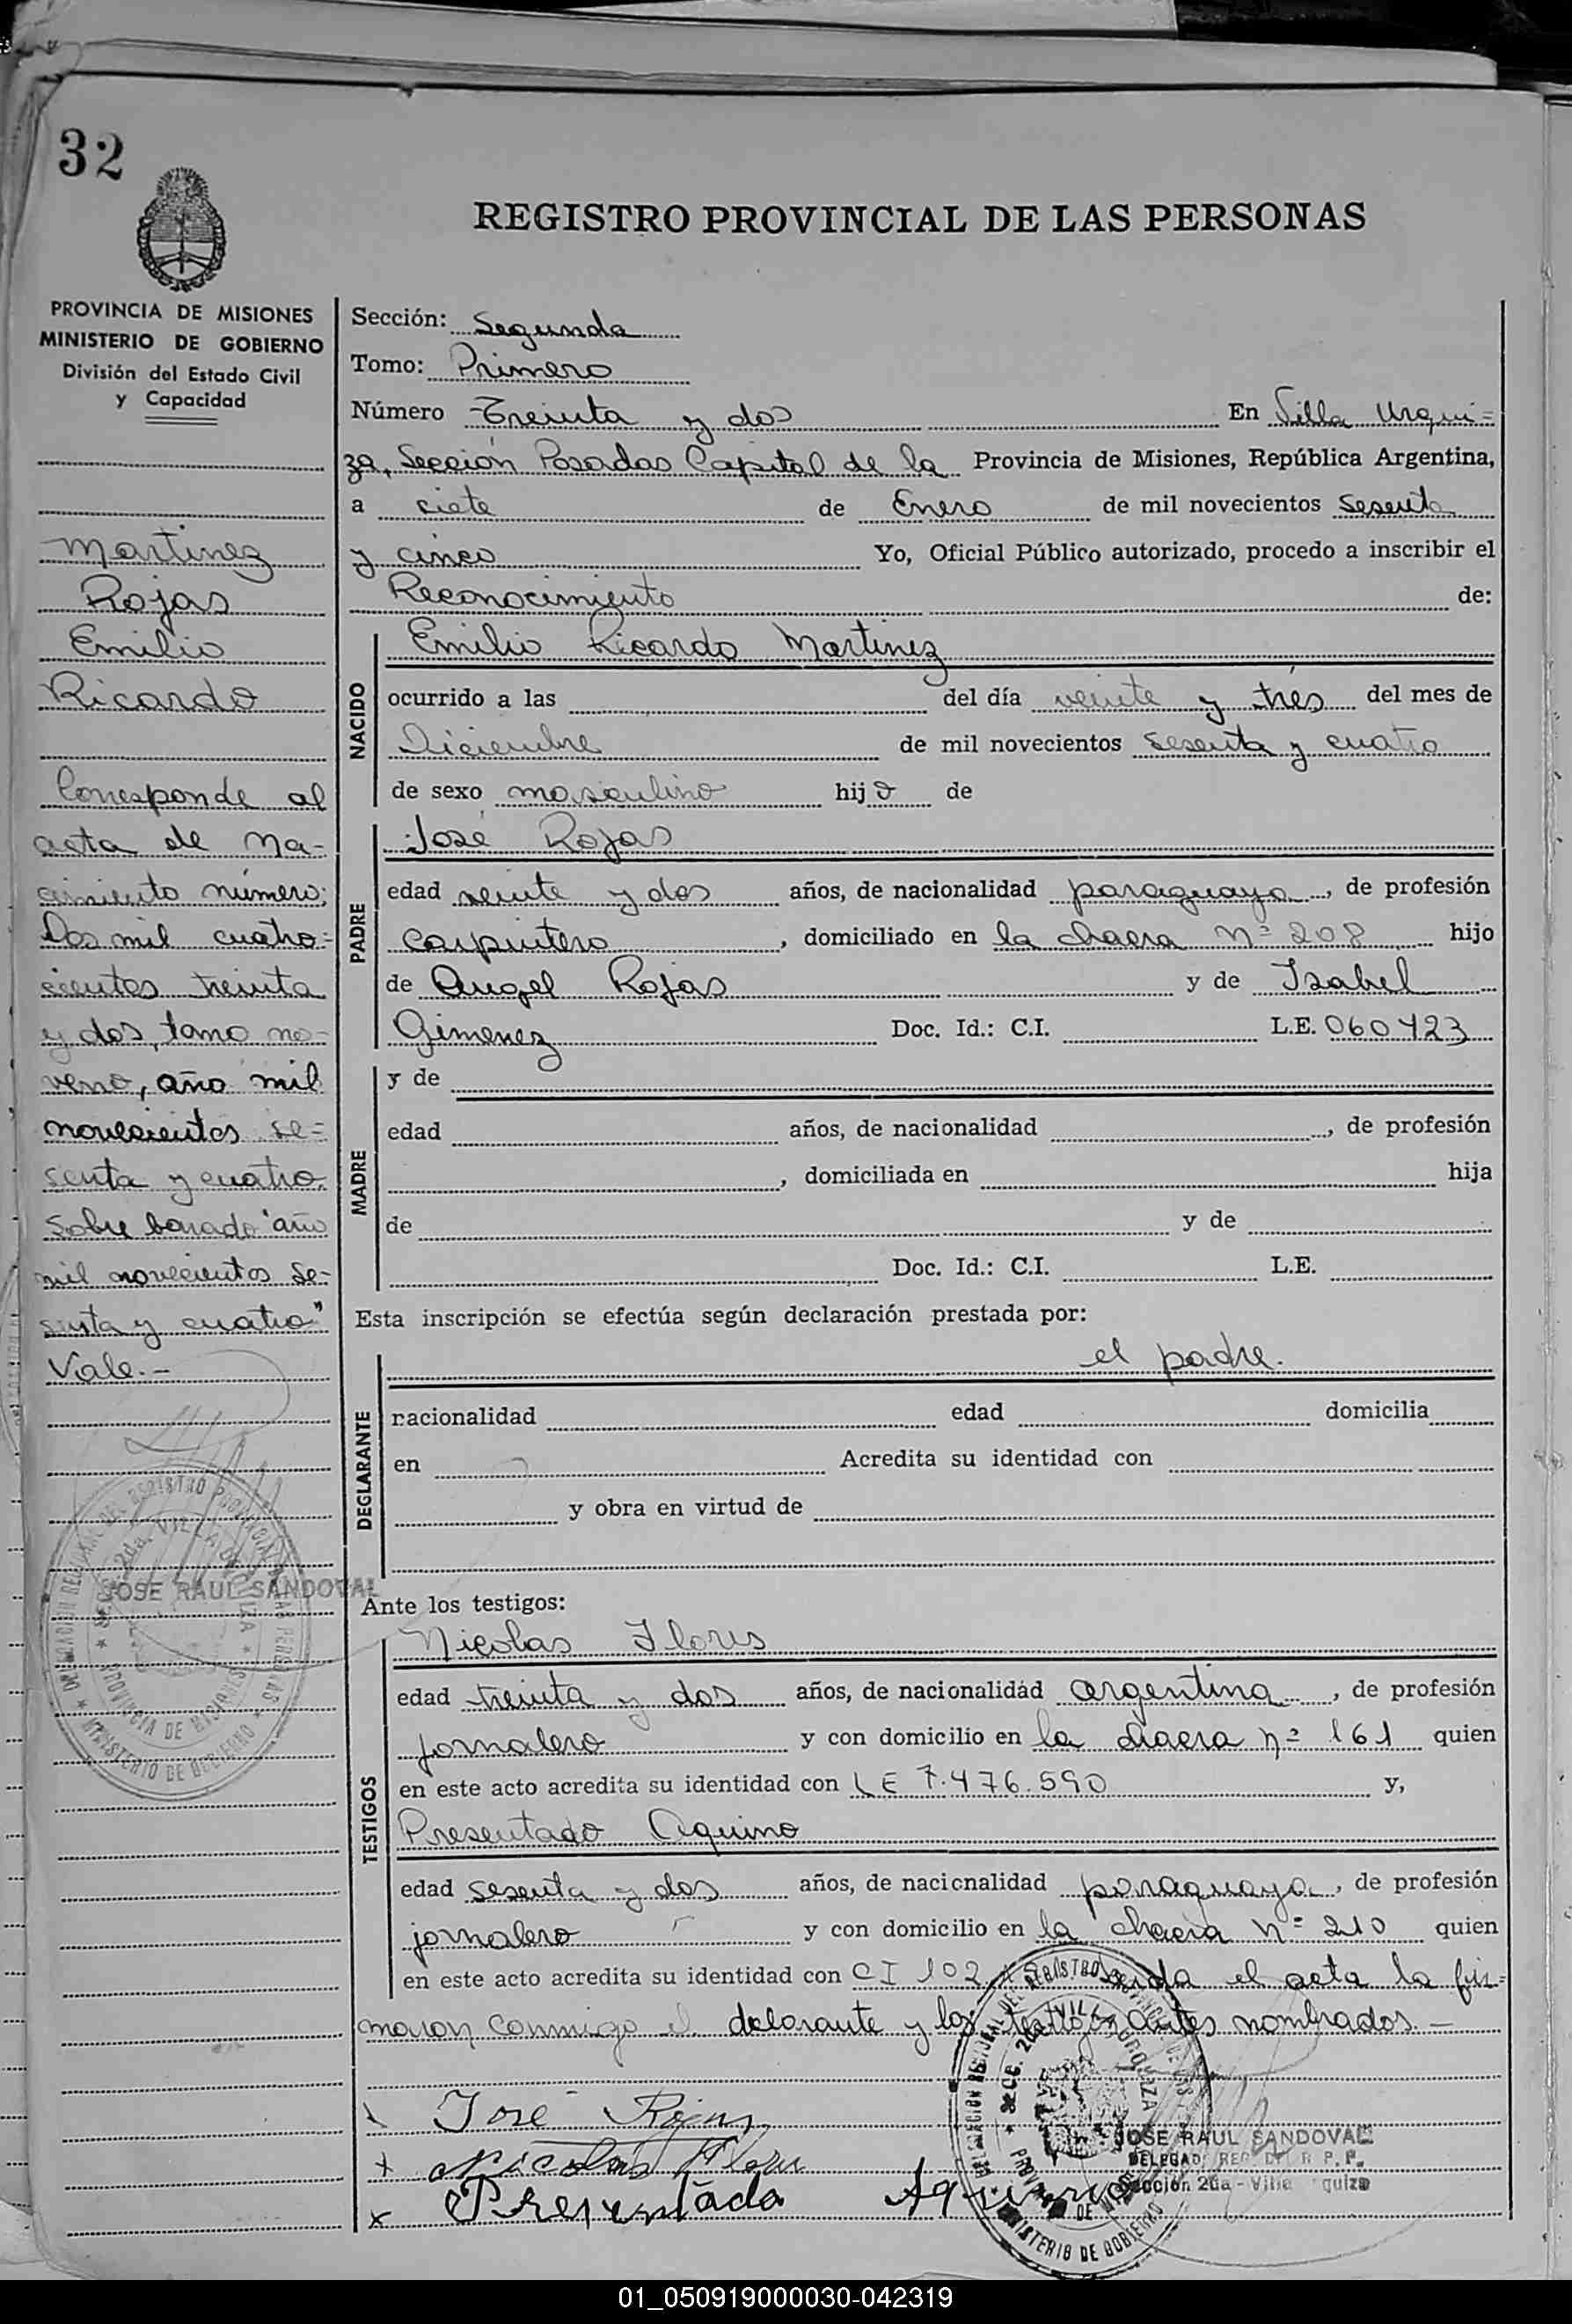 32
REGISTRO PROVINCIAL DE LAS PERSONAS
PROVINCIA DE MISIONES
MINISTERIO DE GOBIERNO
División del Estado Civil
y Capacidad
Martinez
Rojas
Emilio
Ricardo
Corresponde al
acta de na-
cimiento número:
Dos mil cuatro=
cientos treinta
y dos, tomo no-
veno, año mil
novecientos se=
senta y cuatro.
Sobre borrado "año
mil novecientos se-
senta y cuatro"
Vale.-
JOSE RAUL SANDOVAL
Sección: Segunda
Tomo: Primero
Número Treinta y dos En Villa Urqui=
za, Sección Posadas Capital de la Provincia de Misiones, República Argentina,
a siete de Enero de mil novecientos Sesenta
y cinco Yo, Oficial Público autorizado, procedo a inscribir el
Reconocimiento de:
NACIDO
Emilio Ricardo Martinez
ocurrido a las del día veinte y tres del mes de
Diciembre de mil novecientos sesenta y cuatro
de sexo masculino hijo de
PADRE
José Rojas
edad veinte y dos años, de nacionalidad paraguaya, de profesión
carpintero, domiciliado en la chacra Nº 208 hijo
de Angel Rojas y de Isabel
Gimenez Doc. Id.: C.I. L.E. 060423
MADRE
y de
edad años, de nacionalidad , de profesión
, domiciliada en hija
de y de
Doc. Id.: C.I. L.E.
Esta inscripción se efectúa según declaración prestada por:
DEGLARANTE
el padre.
nacionalidad edad domicilia
en Acredita su identidad con
y obra en virtud de
Ante los testigos:
TESTIGOS
Nicolas Flores
edad treinta y dos años, de nacionalidad argentina, de profesión
jornalero y con domicilio en la chacra nº 161 quien
en este acto acredita su identidad con LE 7.476.590 y,
Presentado Aquino
edad sesenta y dos años, de nacionalidad paraguaya, de profesión
jornalero y con domicilio en la chacra Nº 210 quien
en este acto acredita su identidad con CI 102 el acta la fir=
maron conmigo el delarante y los testigos antes nombrados.-
José Rojas
Nicolas Flores
Presentado Aquino
JOSE RAUL SANDOVAL
MINISTERIO DE GOBIERNO
01_050919000030-042319